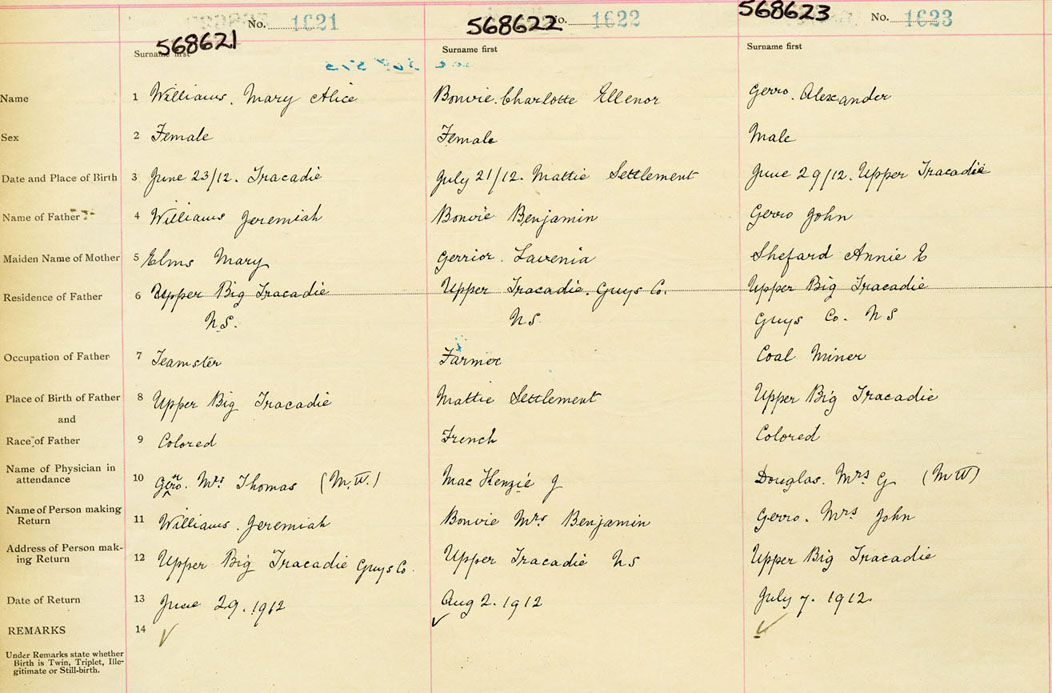 No. 1621
568621
Surname first
568622
No. 1622
Surname first
568623
No. 1623
Surname first
Name 1 Williams. Mary Alice
Bonvie. Charlotte Ellenor
Gerro. Alexander
Sex 2 Female
Female
Male
Date and Place of Birth 3 June 23/12. Tracadie
July 21/12. Mattie Settlement
June 29/12. Upper Tracadie
Name of Father 4 Williams Jeremiah
Bonvie Benjamin
Gerro John
Maiden Name of Mother 5 Elms Mary
Gerrior. Lavenia
Shefard Annie E
Residence of Father 6 Upper Big Tracadie
N.S.
Upper Tracadie. Guys Co.
NS
Upper Big Tracadie
Guys Co. NS
Occupation of Father 7 Teamster
Farmer
Coal Miner
Place of Birth of Father 8 Upper Big Tracadie
Mattie Settlement
Upper Big Tracadie
and
Race of Father 9 Colored
French
Colored
Name of Physician in
attendance 10 Mrs Thomas (M.W.)
Mac Kenzie J
Douglas. Mrs G (MW)
Name of Person making
Return 11 Williams. Jeremiah
Bonvie Mrs Benjamin
Gerro. Mrs John
Address of Person mak-
ing Return 12 Upper Big Tracadie Guys Co.
Upper Tracadie NS
Upper Big Tracadie
Date of Return 13 June 29. 1912
Aug 2. 1912
July 7. 1912
REMARKS 14
Under Remarks state whether
Birth is Twin, Triplet, Ille-
gitimate or Still-birth.